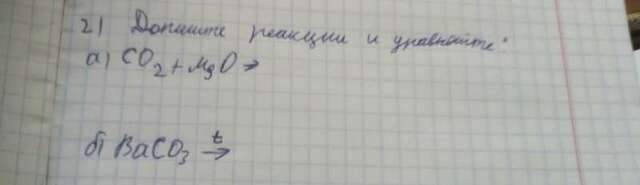 2) Допишите реакции и уравняйте:
а) CO₂ + MgO →
б) BaCO₃ t→